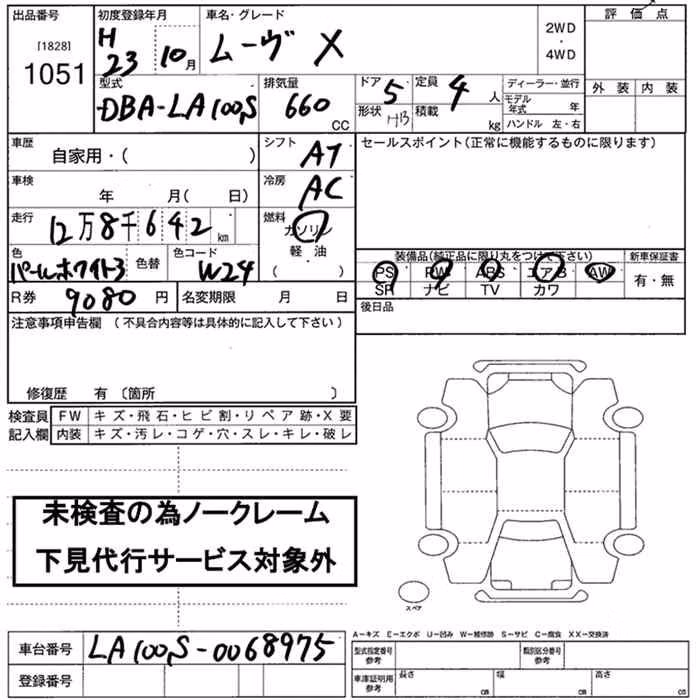 出品番号 初度登録年月 車名・グレード 評価点
[1828] H 23 10月 ムーヴ X 2WD・4WD
1051
型式 排気量 ドア 5 定員 4人 ディーラー・並行 外装 内装
DBA-LA100S 660 CC 形状 積載 kg モデル年式 年
ハンドル 左・右
車歴 自家用・( ) シフト AT セールスポイント(正常に機能するものに限ります)
車検 年 月( 日) 冷房 AC
走行 12万8千642km 燃料 ガソリン
軽・油
( )
色 パールホワイト3 色替 色コード W24
装備品(純正品に限り丸をつけて下さい) 新車保証書
PS PW ABS エアB AW 有・無
SR ナビ TV カワ
R券 9080円 名変期限 月 日 後日品
注意事項申告欄 (不具合内容等は具体的に記入して下さい)
修復歴 有 (箇所 )
検査員 FW キズ・飛石・ヒビ割・リペア跡・X要
記入欄 内装 キズ・汚レ・コゲ・穴・スレ・キレ・破レ
未検査の為ノークレーム
下見代行サービス対象外
スペア
A−キズ E−エクボ U−凹み W−補修跡 S−サビ C−腐食 XX−交換済
車台番号 LA100S-0068975 型式指定番号参考 類別区分番号参考
登録番号 車庫証明用参考 長さ cm 幅 cm 高さ cm